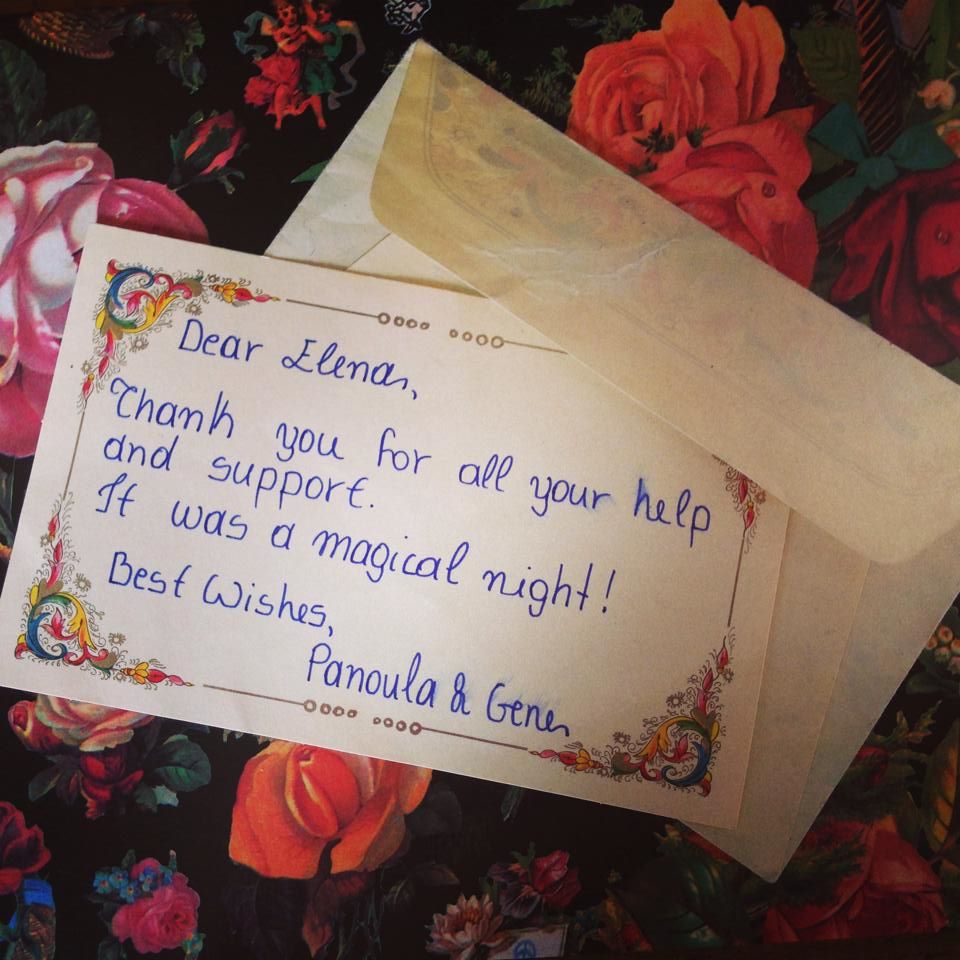 Dear Elena,
Thank you for all your help
and support.
It was a magical night!
Best Wishes,
Panoula & Gene